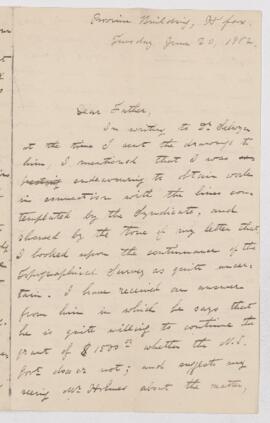 Province Building, H'fax.
Tuesday June 20, 1882.
Dear Father,
In writing to Dr Selwyn
at the time I sent the drawings to
him, I mentioned that I was
endeavouring to obtain work
in connection with the line con-
templated by the Syndicate, and
showed by the tone of my letter that
I looked upon the continuance of the
topographical Survey as quite uncer-
tain. I have received an answer
from him in which he says that
he is quite willing to continue the
grant of $1500.00 whether the N.S.
Govt does or not; and suggests my
seeing Mr Holmes about the matter,